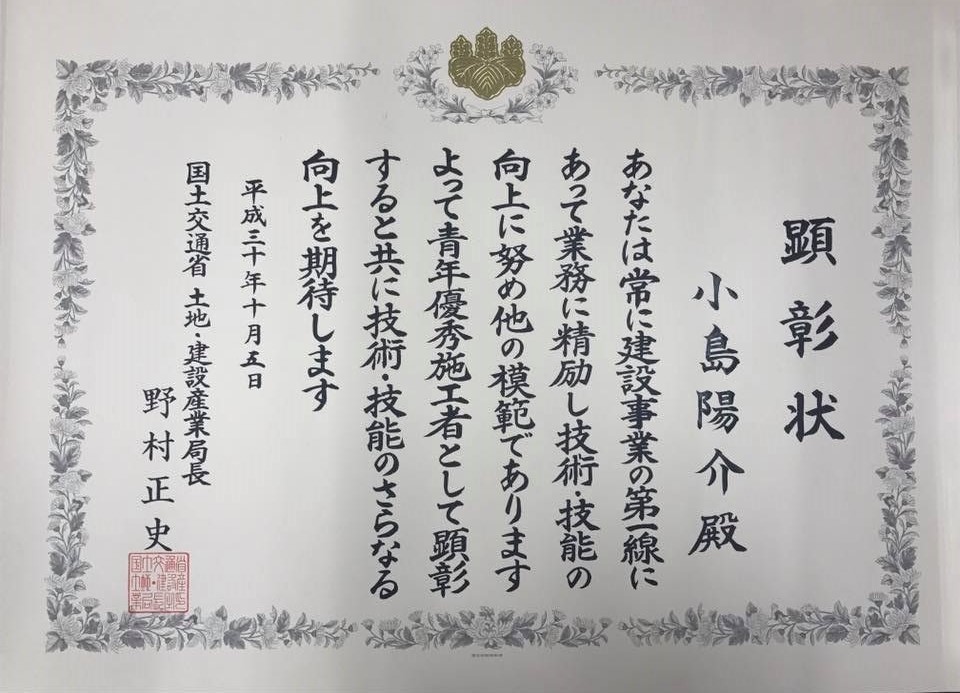 顕彰状
小島陽介殿
あなたは常に建設事業の第一線に
あって業務に精励し技術・技能の
向上に努め他の模範であります
よって青年優秀施工者として顕彰
すると共に技術・技能のさらなる
向上を期待します
平成三十年十月五日
国土交通省 土地・建設産業局長
野村正史